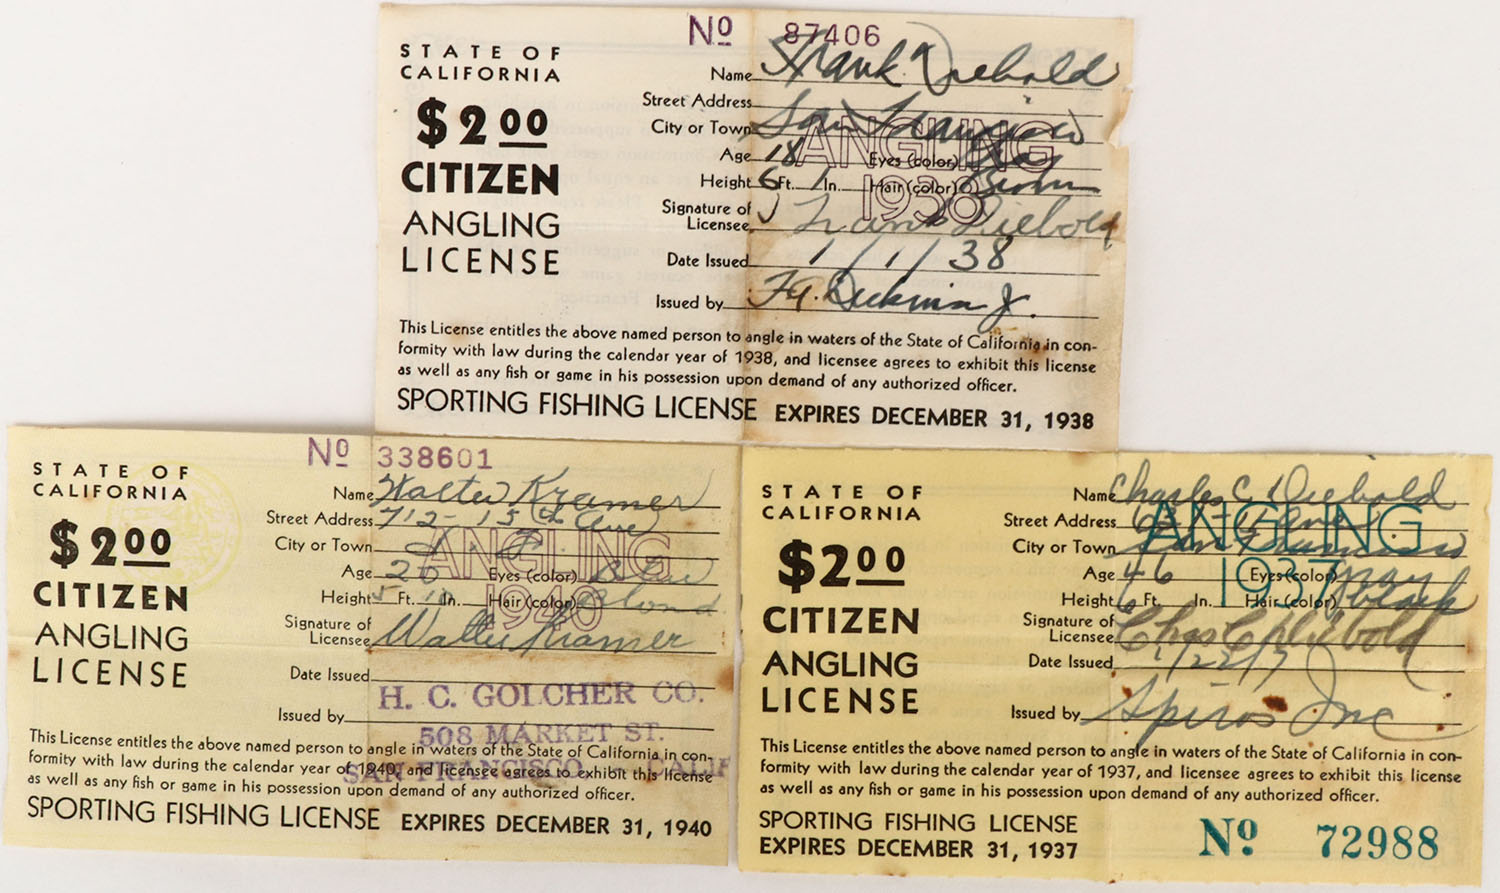 STATE OF
CALIFORNIA
$2.00
CITIZEN
ANGLING
LICENSE
Nº 87406
Name Frank Diebold
Street Address
City or Town San Francisco
Age 18 Eyes (color)
Height 6 Ft. 1 In. Hair (color) Brown
ANGLING
1938
Signature of
Licensee Frank Diebold
Date Issued 1/1/38
Issued by
This License entitles the above named person to angle in waters of the State of California in con-
formity with law during the calendar year of 1938, and licensee agrees to exhibit this license
as well as any fish or game in his possession upon demand of any authorized officer.
SPORTING FISHING LICENSE EXPIRES DECEMBER 31, 1938
STATE OF
CALIFORNIA
$2.00
CITIZEN
ANGLING
LICENSE
Nº 338601
Name Walter Kramer
Street Address 712-15th Ave
City or Town S. F.
Age 26 Eyes (color) Blue
Height 5 Ft. 10 In. Hair (color) Blond
ANGLING
1940
Signature of
Licensee Walter Kramer
Date Issued
Issued by
H. C. GOLCHER CO.
508 MARKET ST.
SAN FRANCISCO CALIF
This License entitles the above named person to angle in waters of the State of California in con-
formity with law during the calendar year of 1940, and licensee agrees to exhibit this license
as well as any fish or game in his possession upon demand of any authorized officer.
SPORTING FISHING LICENSE EXPIRES DECEMBER 31, 1940
STATE OF
CALIFORNIA
$2.00
CITIZEN
ANGLING
LICENSE
Name Charles C Diebold
Street Address
City or Town San Francisco
Age 46 Eyes (color) Gray
Height 6 Ft. In. Hair (color) Black
ANGLING
1937
Signature of
Licensee Chas C Diebold
Date Issued 1/22/7
Issued by Spiros Inc
This License entitles the above named person to angle in waters of the State of California in con-
formity with law during the calendar year of 1937, and licensee agrees to exhibit this license
as well as any fish or game in his possession upon demand of any authorized officer.
SPORTING FISHING LICENSE
EXPIRES DECEMBER 31, 1937
Nº 72988